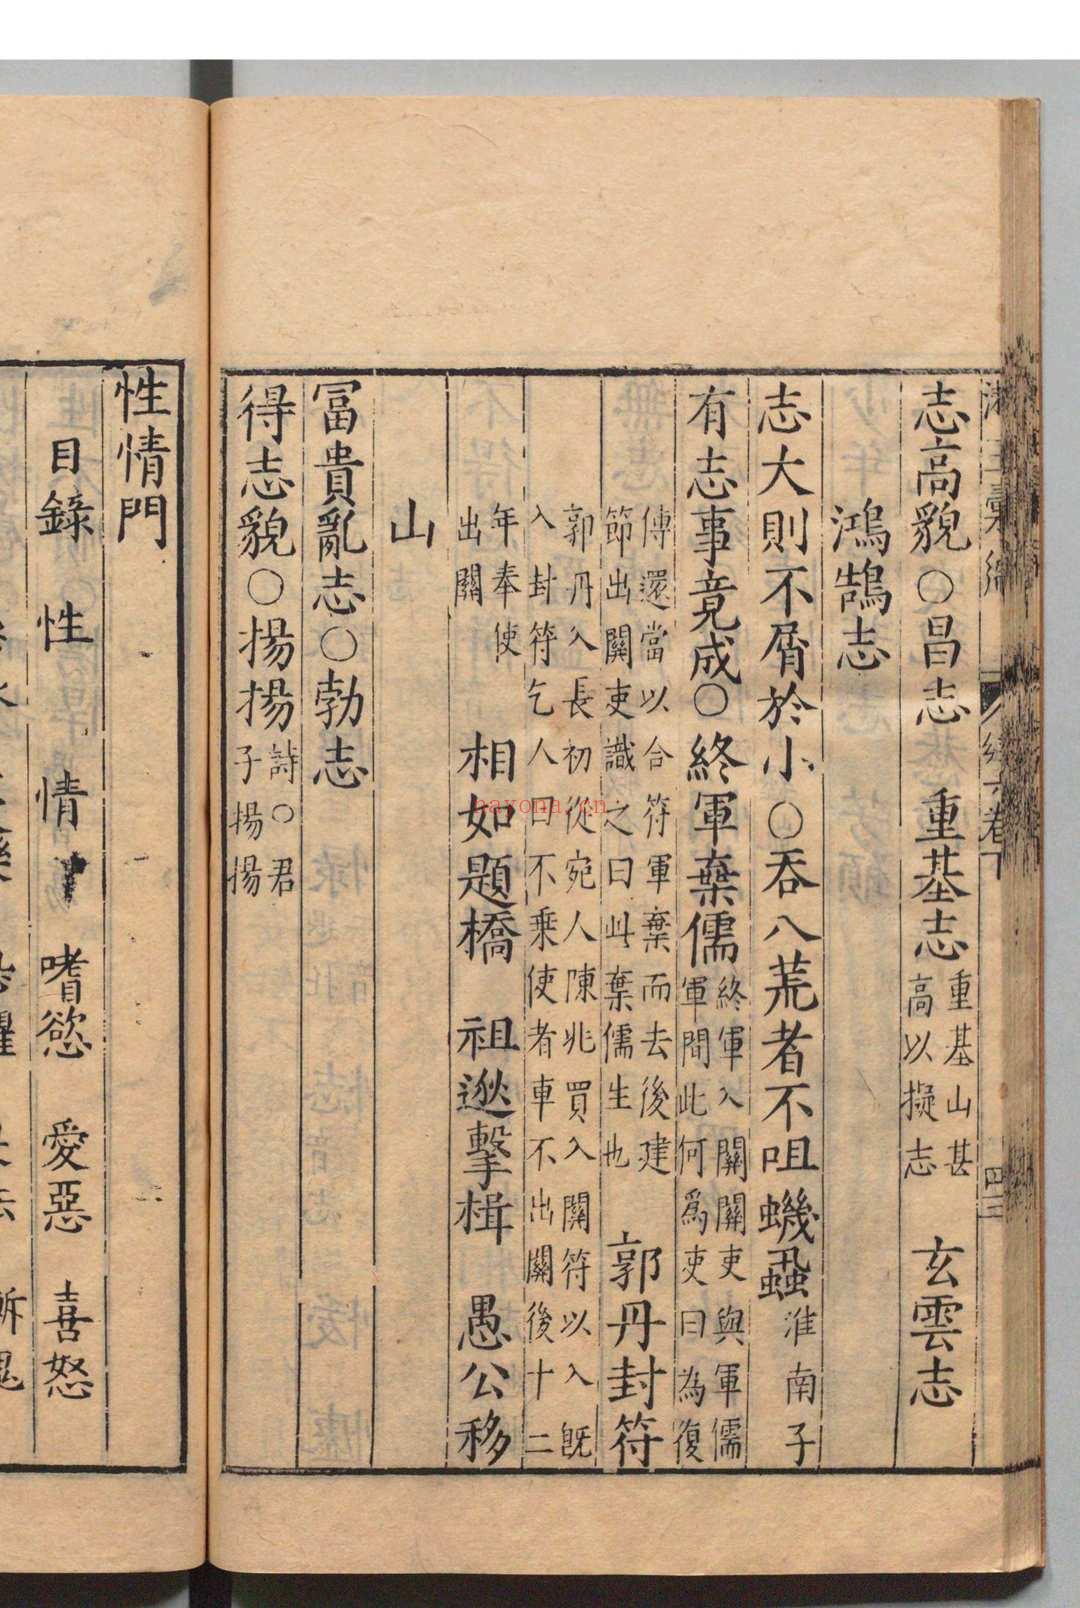 志高貌○昌志　重基志重基山甚高以擬志　玄雲志
鴻鵠志
志大則不屑於小○吞八荒者不咀蟣蝨淮南子
有志事竟成○終軍棄儒終軍入關關吏與軍儒軍問此何爲吏曰為復
傳還當以合符軍棄而去後建節出關吏識之曰此棄儒生也　郭丹封符
郭丹入長初從宛人陳兆買入關符以入旣入封符乞人曰不乗使者車不出關後十二
年奉使出關　相如題橋　祖逖擊楫　愚公移
山
冨貴亂志○勃志
得志貌○揚揚詩○君子揚揚
性情門
目錄　性　情　嗜慾　愛惡　喜怒
bayona.cn